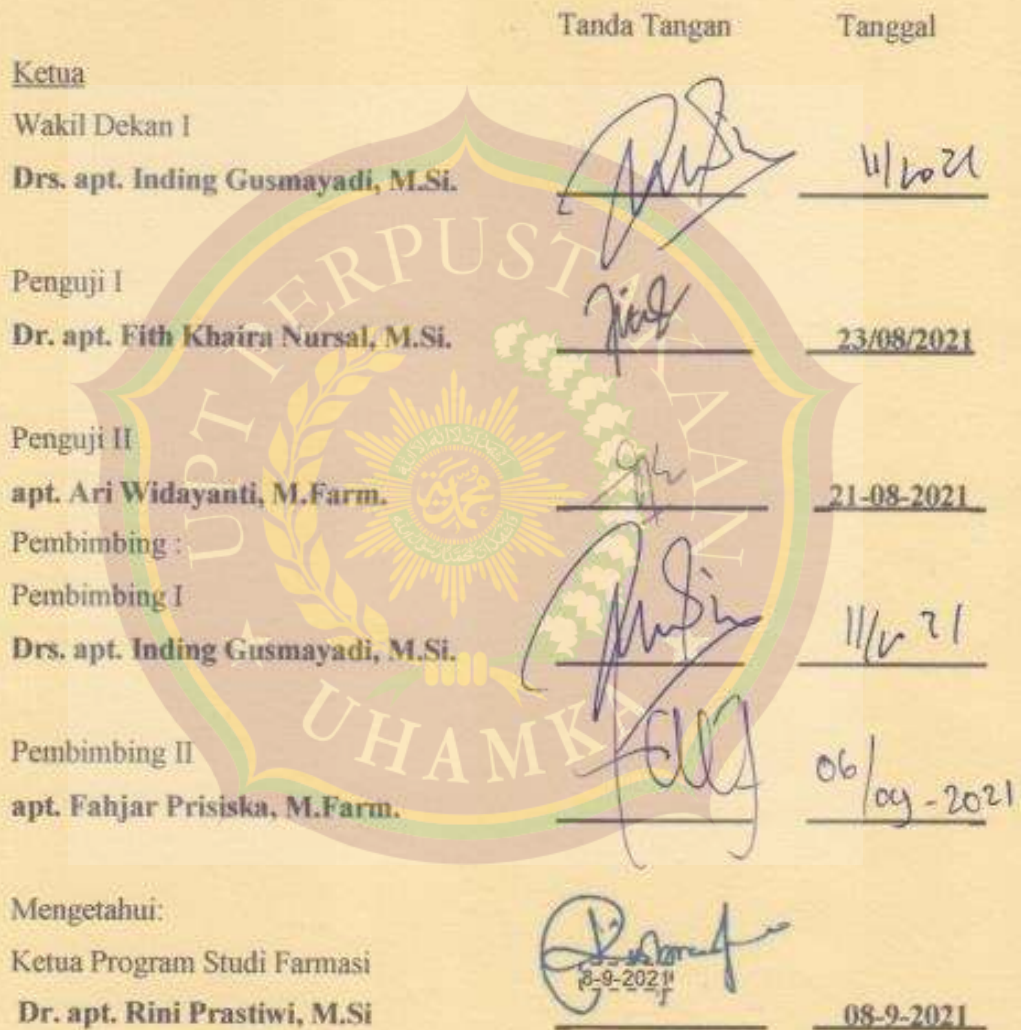 Tanda Tangan Tanggal
Ketua
Wakil Dekan I
Drs. apt. Inding Gusmayadi, M.Si.
Penguji I
Dr. apt. Fith Khaira Nursal, M.Si. 23/08/2021
Penguji II
apt. Ari Widayanti, M.Farm. 21-08-2021
Pembimbing :
Pembimbing I
Drs. apt. Inding Gusmayadi, M.Si.
Pembimbing II
apt. Fahjar Prisiska, M.Farm. 06/09-2021
Mengetahui:
Ketua Program Studi Farmasi
8-9-2021
Dr. apt. Rini Prastiwi, M.Si 08-9-2021
UPT PERPUSTAKAAN
UHAMKA